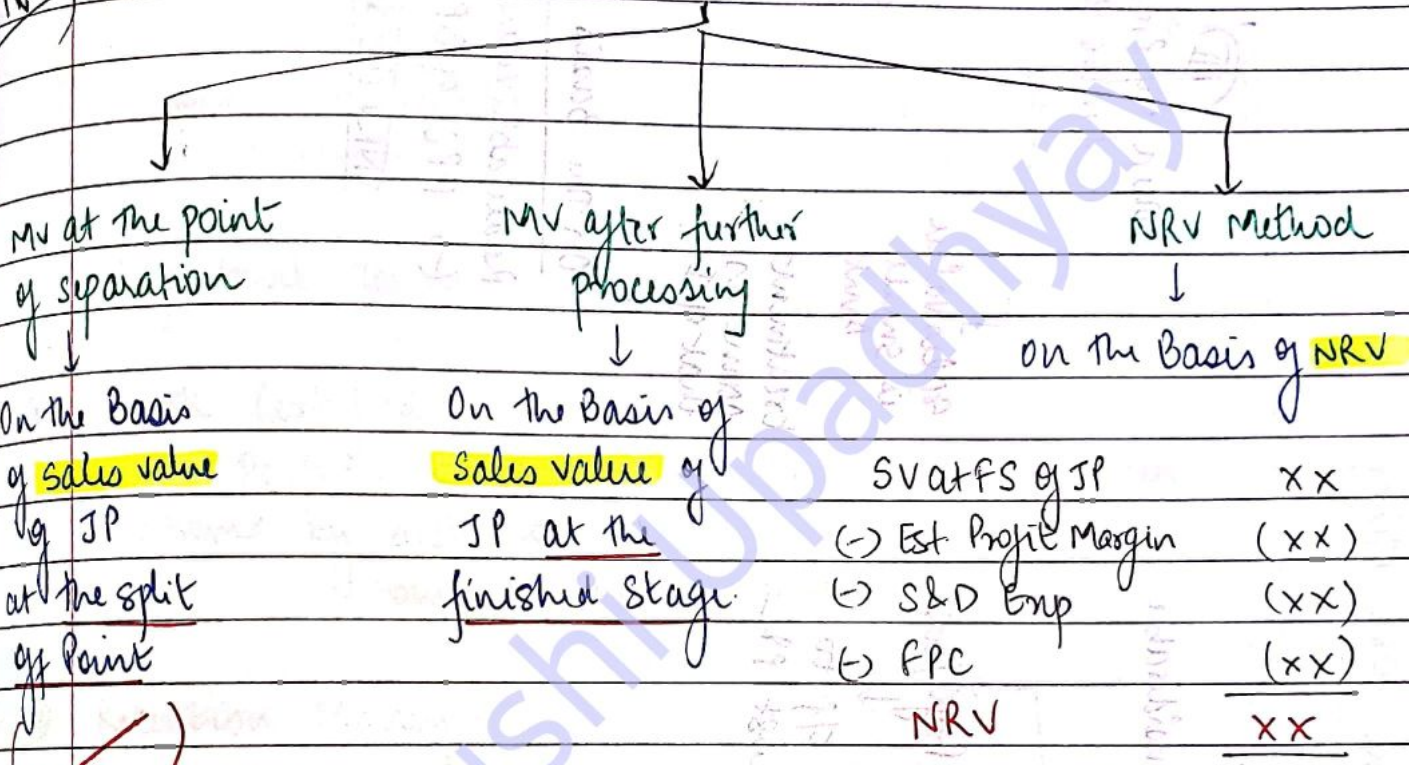 MV at the point
of separation
On the Basis
of sales value
of JP
at the split
off Point
MV after further
processing
On the Basis of
Sales value of
JP at the
finished stage.
NRV Method
on the Basis of NRV
SV at FS of JP xx
(-) Est Profit Margin (xx)
(-) S&D Exp (xx)
(-) FPC (xx)
NRV xx
ushi Upadhyay